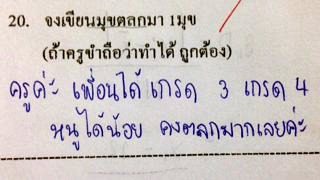 20. จงเขียนมุขตลกมา 1มุข
(ถ้าครูขำถือว่าทำได้ ถูกต้อง)
ครูค่ะ เพื่อนได้ เกรด 3 เกรด 4
หนูได้น้อย คงตลกมากเลยค่ะ